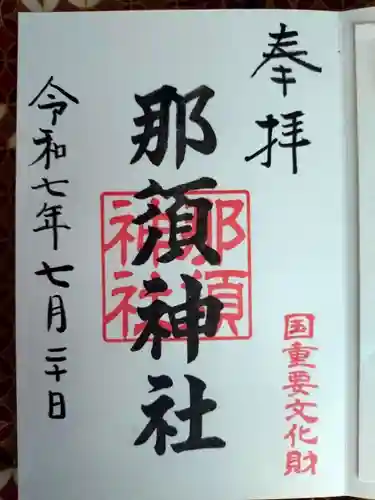 奉拝
国重要文化財
那須神社
那須神社
令和七年七月二十日